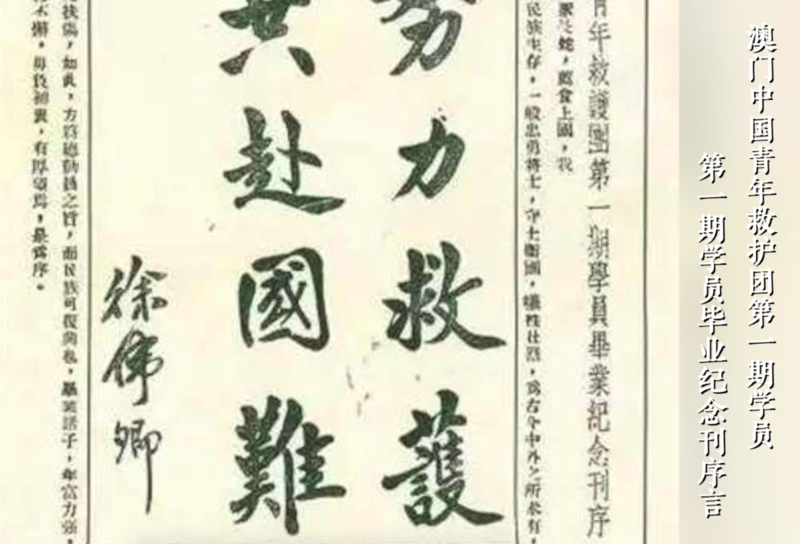 澳门中国青年救护团第一期学员
第一期学员毕业纪念刊序言
青年救護團第一期學員畢業紀念刊序
蛇，荐食上國，我
民族生存，一般忠勇將士，守土衛國，犧牲壯烈，為古今中外之所未有，
努力救護
共赴國難
徐偉卿
扶傷，如此，方為
之旨，而民族可復興也，
子，年富力强，
有厚望焉，是為序。